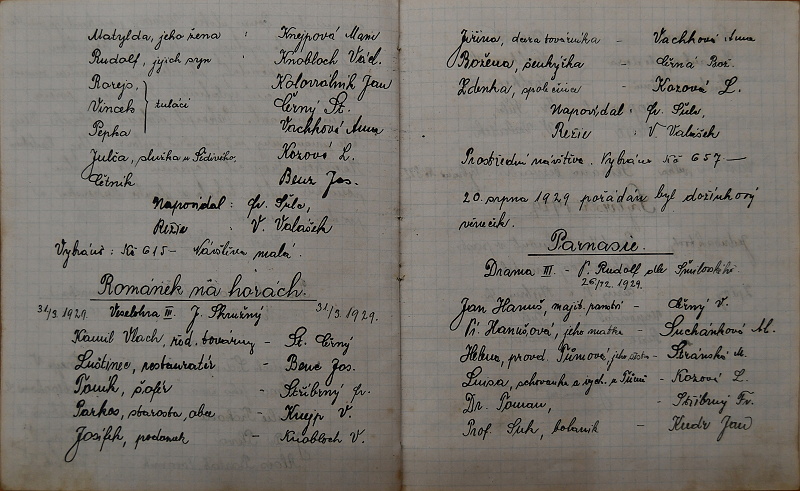 Matylda, jeho žena : Knejpová Mani
Rudolf, jejich syn " Knobloch Václ.
Rorejs,  Kolovrátník Jan
Vincek } tuláci Černý St.
Pepka Vachková Anna
Julča, služka u Šidivého, Kozová L.
Četník Benc Jos.
Napovídal : fr. Šůla,
Režie V. Valášek
Vybráno : Kč 615 — Návštěva malá.
Románek na horách.
31/3. 1929. Veselohra III. J. Skružný 31/3. 1929.
Kamil Vlach, řed. továrny – St. Černý
Luštinec, restauratér – Benc Jos.
Tomík, šofér – Stříbrný fr.
Parkos, starosta, obce – Knejp V.
Josífek, ponocný – Knobloch V.
Jiřina, dcera továrníka – Vachková Anna
Božena, šenkýřka – Černá Bož.
Zdenka, společnice – Kozová L.
Napovídal : fr. Šůla,
Režie : V. Valášek
Prostřední návštěva. Vybráno Kč 657 —
20. srpna 1929 pořádán byl dožínkový
věneček.
Parnasie.
Drama III – P. Rudolf dle Šmilovského.
26/12. 1929.
Jan Hanuš, majit. panství – Černý V.
Hanušová, jeho matka – Suchánková M.
Helena, provd. Tůmová, jeho sestra – Stránská M.
Luisa, schovanka a vych. u Tůmů – Kozová L.
Dr. Toman, – Stříbrný Fr.
Prof. Suk, botanik – Kudr Jan